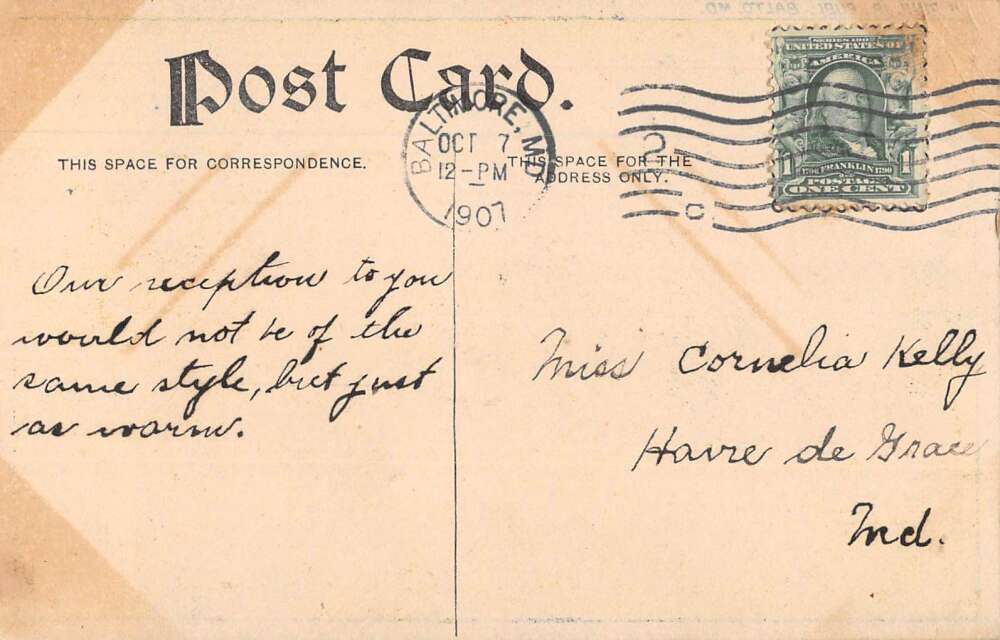 Post Card.
THIS SPACE FOR CORRESPONDENCE.
THIS SPACE FOR THE
ADDRESS ONLY.
BALTIMORE, MD
OCT 7
12-PM
1907
2
C
SERIES 1902
UNITED STATES OF
AMERICA
1 FRANKLIN 1
1706 1790
POSTAGE
ONE CENT
Our reception to you
would not be of the
same style, but just
as warm.
Miss Cornelia Kelly
Havre de Grace
Md.